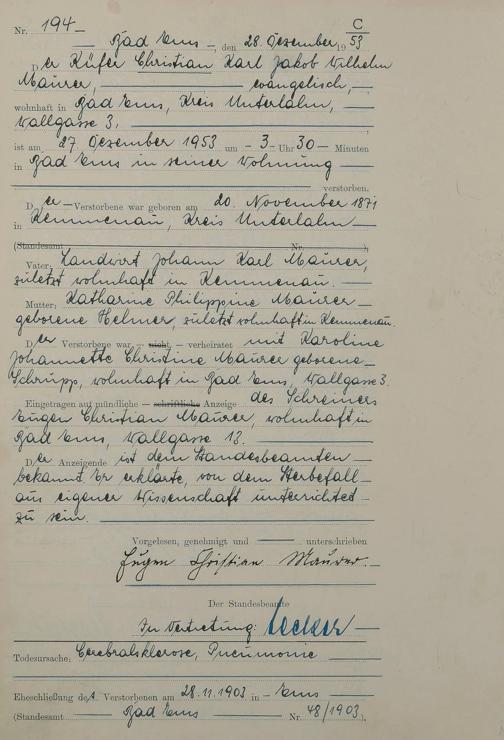 C
Nr. 194
Bad Ems, den 28. Dezember 1953
Der Küfer Christian Karl Jakob Wilhelm
Maurer, evangelisch,
wohnhaft in Bad Ems, Kreis Unterlahn,
Wallgasse 3,
ist am 27. Dezember 1953 um - 3 - Uhr 30 - Minuten
in Bad Ems in seiner Wohnung
verstorben.
Der - Verstorbene war geboren am 20. November 1871
in Kemmenau, Kreis Unterlahn
(Standesamt Nr. ),
Vater: Landwirt Johann Karl Maurer,
zuletzt wohnhaft in Kemmenau.
Mutter: Katharine Philippine Maurer
geborene Helmer, zuletzt wohnhaft in Kemmenau.
Der Verstorbene war — nicht — verheiratet mit Karoline
Johannette Christine Maurer geborene
Schrupp, wohnhaft in Bad Ems, Wallgasse 3.
Eingetragen auf mündliche — schriftliche Anzeige des Schreiners
Eugen Christian Maurer, wohnhaft in
Bad Ems, Wallgasse 13.
Der Anzeigende ist dem Standesbeamten
bekannt. Er erklärte, von dem Sterbefall
aus eigener Wissenschaft unterrichtet
zu sein.
Vorgelesen, genehmigt und unterschrieben
Eugen Christian Maurer.
Der Standesbeamte
In Vertretung:
Todesursache: Cerebralsklerose, Pneumonie
Eheschließung des Verstorbenen am 28.11.1903 in - Ems
(Standesamt Bad Ems Nr. 48/1903).